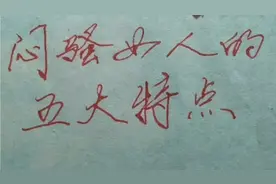 闷骚女人的
五大特点